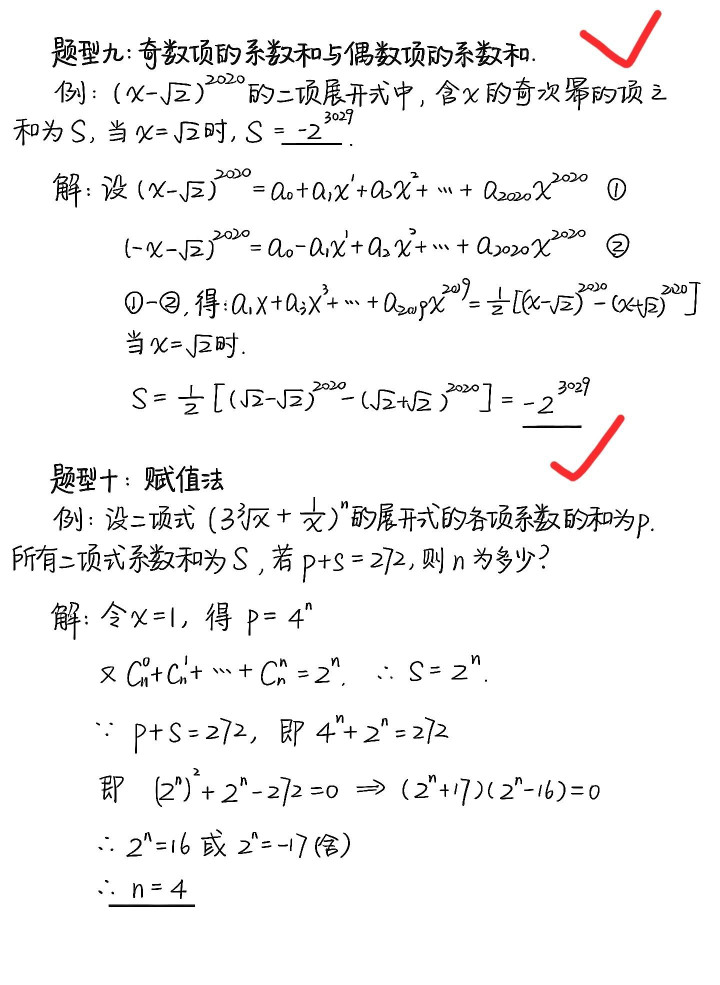 题型九：奇数项的系数和与偶数项的系数和.
例：(x-√2)^2020 的二项展开式中，含x的奇次幂的项之
和为S，当x=√2时，S = -2^3029.
解：设(x-√2)^2020 = a₀+a₁x¹+a₂x²+…+a₂₀₂₀x^2020 ①
(-x-√2)^2020 = a₀-a₁x¹+a₂x²+…+a₂₀₂₀x^2020 ②
①-②，得：a₁x+a₃x³+…+a₂₀₁₉x^2019 = 1/2[(x-√2)^2020-(x+√2)^2020]
当x=√2时.
S = 1/2[(√2-√2)^2020-(√2+√2)^2020] = -2^3029
题型十：赋值法
例：设二项式(3∛x + 1/x)^n的展开式的各项系数的和为p.
所有二项式系数和为S，若p+s=272，则n为多少？
解：令x=1，得 p=4^n
又 Cₙ⁰+Cₙ¹+…+Cₙⁿ=2^n. ∴ S=2^n.
∵ p+S=272，即 4^n+2^n=272
即 (2^n)²+2^n-272=0 ⇒ (2^n+17)(2^n-16)=0
∴ 2^n=16 或 2^n=-17(舍)
∴ n=4